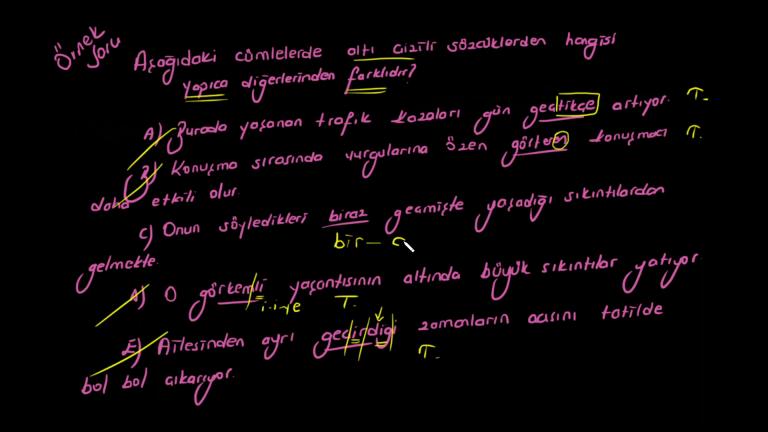 Örnek Soru
Aşağıdaki cümlelerde altı çizili sözcüklerden hangisi
yapıca diğerlerinden farklıdır?
A) Burada yaşanan trafik kazaları gün geçtikçe artıyor. T.
B) Konuşma sırasında vurgularına özen gösteren konuşmacı T.
daha etkili olur.
C) Onun söyledikleri biraz geçmişte yaşadığı sıkıntılardan
bir - a
gelmekte.
O görkemli yaşantısının altında büyük sıkıntılar yatıyor.
T.
E) Ailesinden ayrı geçirdiği zamanların acısını tatilde
T.
bol bol çıkarıyor.